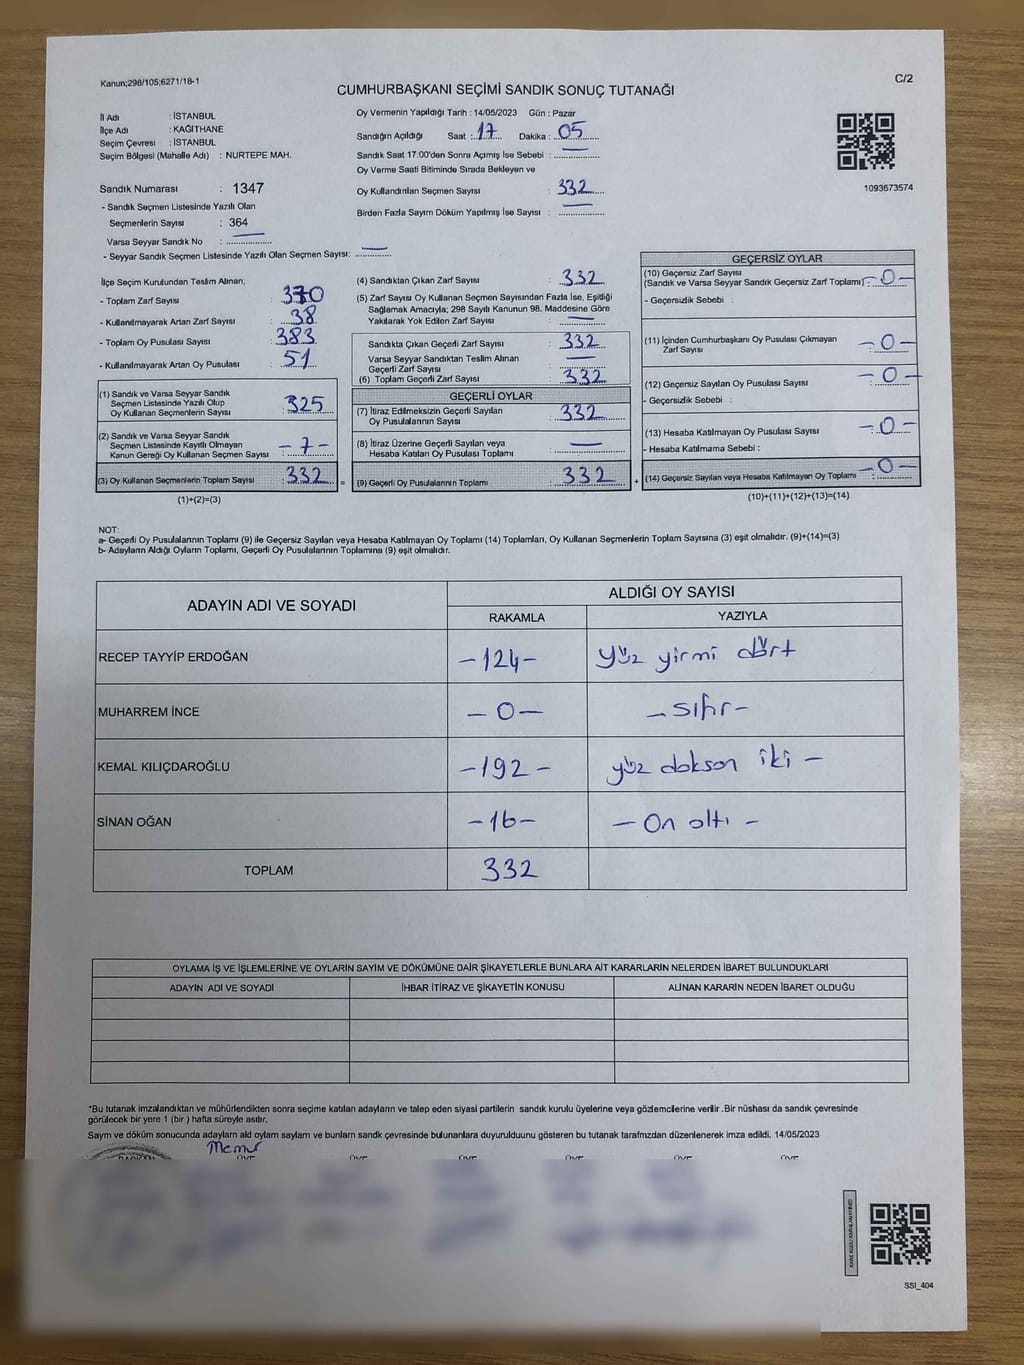 Kanun;298/105;6271/18-1
C/2
CUMHURBAŞKANI SEÇİMİ SANDIK SONUÇ TUTANAĞI
İl Adı : İSTANBUL
İlçe Adı : KAĞITHANE
Seçim Çevresi : İSTANBUL
Seçim Bölgesi (Mahalle Adı) : NURTEPE MAH.
Sandık Numarası : 1347
- Sandık Seçmen Listesinde Yazılı Olan
Seçmenlerin Sayısı : 364
Varsa Seyyar Sandık No :
- Seyyar Sandık Seçmen Listesinde Yazılı Olan Seçmen Sayısı:
Oy Vermenin Yapıldığı Tarih : 14/05/2023 Gün : Pazar
Sandığın Açıldığı Saat : 17 Dakika : 05
Sandık Saat 17:00'den Sonra Açmış İse Sebebi :
Oy Verme Saati Bitiminde Sırada Bekleyen ve
Oy Kullandırılan Seçmen Sayısı : 332
Birden Fazla Sayım Döküm Yapılmış İse Sayısı :
1093673574
İlçe Seçim Kurulundan Teslim Alınan;
- Toplam Zarf Sayısı : 370
- Kullanılmayarak Artan Zarf Sayısı : 38
- Toplam Oy Pusulası Sayısı : 383
- Kullanılmayarak Artan Oy Pusulası : 51
(1) Sandık ve Varsa Seyyar Sandık
Seçmen Listesinde Yazılı Olup
Oy Kullanan Seçmenlerin Sayısı : 325
(2) Sandık ve Varsa Seyyar Sandık
Seçmen Listesinde Kayıtlı Olmayan
Kanun Gereği Oy Kullanan Seçmen Sayısı : - 7 -
(3) Oy Kullanan Seçmenlerin Toplam Sayısı : 332
(1)+(2)=(3)
=
(4) Sandıktan Çıkan Zarf Sayısı : 332
(5) Zarf Sayısı Oy Kullanan Seçmen Sayısından Fazla İse, Eşitliği
Sağlamak Amacıyla; 298 Sayılı Kanunun 98. Maddesine Göre
Yakılarak Yok Edilen Zarf Sayısı :
Sandıkta Çıkan Geçerli Zarf Sayısı : 332
Varsa Seyyar Sandıktan Teslim Alınan
Geçerli Zarf Sayısı :
(6) Toplam Geçerli Zarf Sayısı : 332
GEÇERLİ OYLAR
(7) İtiraz Edilmeksizin Geçerli Sayılan
Oy Pusulalarının Sayısı : 332
(8) İtiraz Üzerine Geçerli Sayılan veya
Hesaba Katılan Oy Pusulası Toplamı :
(9) Geçerli Oy Pusulalarının Toplamı : 332
+
GEÇERSİZ OYLAR
(10) Geçersiz Zarf Sayısı
(Sandık ve Varsa Seyyar Sandık Geçersiz Zarf Toplamı) : - 0 -
- Geçersizlik Sebebi :
(11) İçinden Cumhurbaşkanı Oy Pusulası Çıkmayan
Zarf Sayısı : - 0 -
(12) Geçersiz Sayılan Oy Pusulası Sayısı : - 0 -
- Geçersizlik Sebebi :
(13) Hesaba Katılmayan Oy Pusulası Sayısı : - 0 -
- Hesaba Katılmama Sebebi :
(14) Geçersiz Sayılan veya Hesaba Katılmayan Oy Toplamı : - 0 -
(10)+(11)+(12)+(13)=(14)
NOT:
a- Geçerli Oy Pusulalarının Toplamı (9) ile Geçersiz Sayılan veya Hesaba Katılmayan Oy Toplamı (14) Toplamları, Oy Kullanan Seçmenlerin Toplam Sayısına (3) eşit olmalıdır. (9)+(14)=(3)
b- Adayların Aldığı Oyların Toplamı, Geçerli Oy Pusulalarının Toplamına (9) eşit olmalıdır.
ADAYIN ADI VE SOYADI
ALDIĞI OY SAYISI
RAKAMLA YAZIYLA
RECEP TAYYİP ERDOĞAN -124- yüz yirmi dört
MUHARREM İNCE - 0 - - sıfır -
KEMAL KILIÇDAROĞLU -192 - yüz doksan iki -
SİNAN OĞAN -16- - On altı -
TOPLAM 332
OYLAMA İŞ VE İŞLEMLERİNE VE OYLARIN SAYIM VE DÖKÜMÜNE DAİR ŞİKAYETLERLE BUNLARA AİT KARARLARIN NELERDEN İBARET BULUNDUKLARI
ADAYIN ADI VE SOYADI İHBAR İTİRAZ VE ŞİKAYETİN KONUSU ALINAN KARARIN NEDEN İBARET OLDUĞU
*Bu tutanak imzalandıktan ve mühürlendikten sonra seçime katılan adayların ve talep eden siyasi partilerin sandık kurulu üyelerine veya gözlemcilerine verilir .Bir nüshası da sandık çevresinde
görülecek bir yere 1 (bir ) hafta süreyle asılır.
Sayım ve döküm sonucunda adaylarn ald oylarn saylarn ve bunlarn sandk çevresinde bulunanlara duyurulduunu gösteren bu tutanak tarafmzdan düzenlenerek imza edildi. 14/05/2023
Memur
BAŞKAN ÜYE ÜYE ÜYE ÜYE ÜYE ÜYE
SSI_404